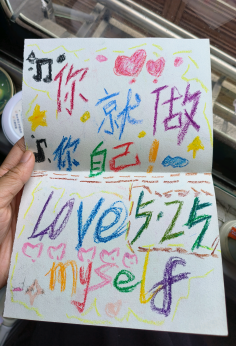 你就做
你自己!
Love 5.25
myself